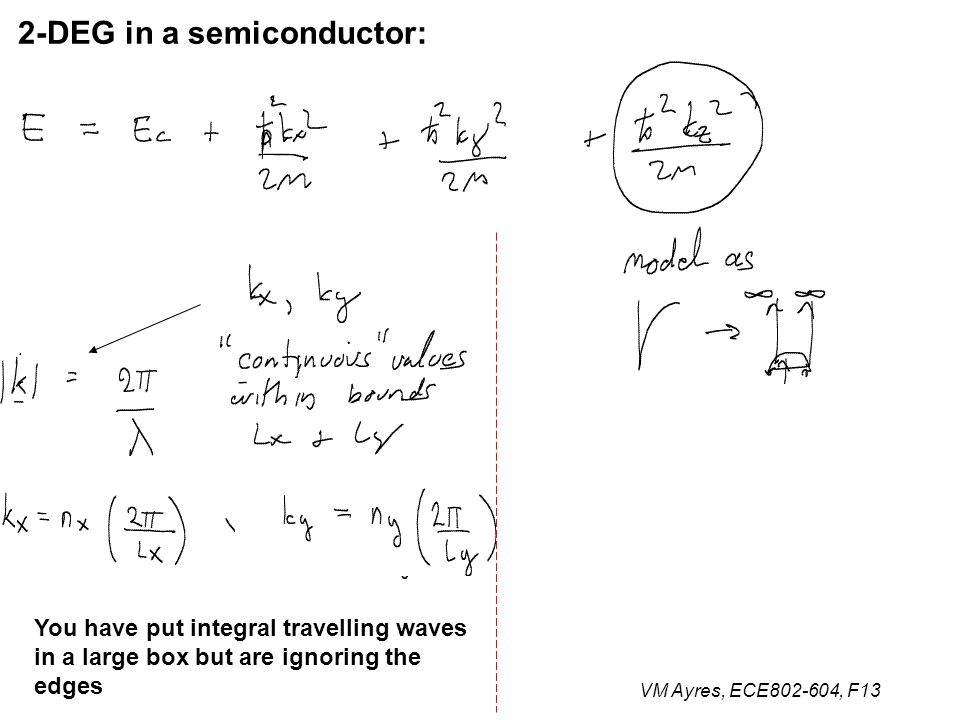 2-DEG in a semiconductor:
E = Ec + ħ²kx²/2m + ħ²ky²/2m + ħ²kz²/2m
kx, ky
"continuous" values
within bounds
Lx + Ly
|k| = 2π/λ
kx = nx (2π/Lx) , ky = ny (2π/Ly)
You have put integral travelling waves
in a large box but are ignoring the
edges
model as
→ ∞ ∞
VM Ayres, ECE802-604, F13